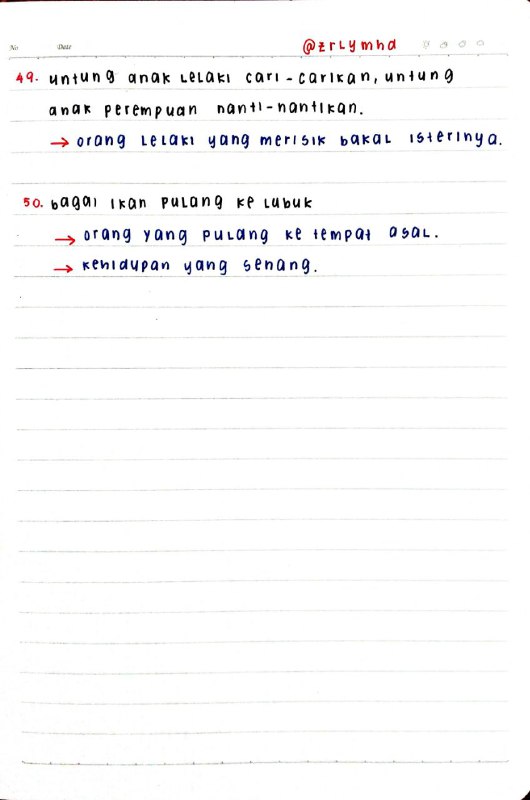 No Date @zrlymhd
49. untung anak lelaki cari-carikan, untung
anak perempuan nanti-nantikan.
→ orang lelaki yang merisik bakal isterinya.
50. bagai ikan pulang ke lubuk
→ orang yang pulang ke tempat asal.
→ kehidupan yang senang.